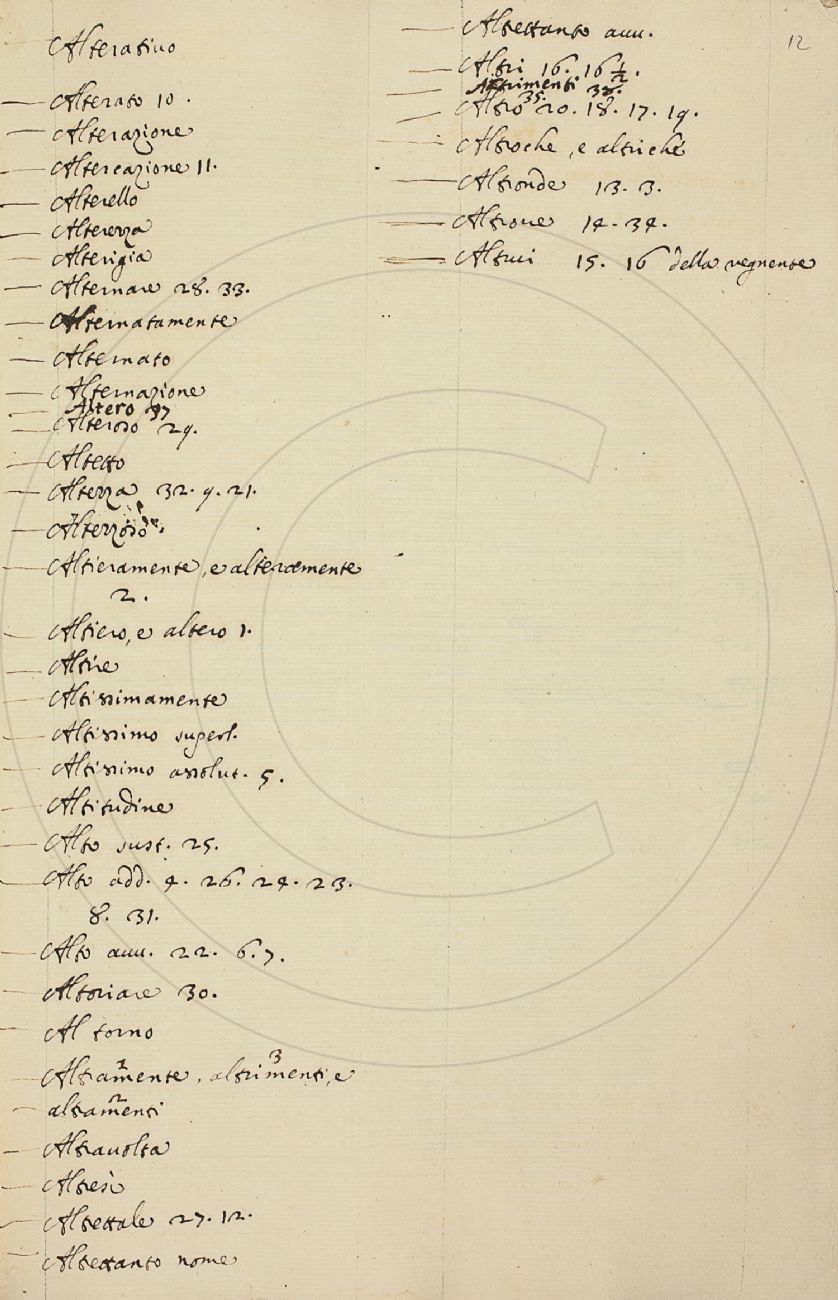 Alterativo
Alterato 10.
Alterazione
Altercazione 11.
Alterello
Alterezza
Alterigia
Alternare 28. 33.
Alternatamente
Alternato
Alternazione
Altero 37
Alteroso 29.
Altetto
Alterza 32. 9. 21.
Alterzoso
Altieramente, e alteramente
2.
Altiero, e altero 1.
Altire
Altissimamente
Altissimo superl.
Altissimo assolut. 5.
Altitudine
Alto sust. 25.
Alto add. 4. 26. 24. 23.
8. 31.
Alto avv. 22. 6. 7.
Altoriare 30.
Al torno
Altramente, altrimenti, e
altramenti
Altravolta
Altresì
Altrettale 27. 12.
Altrettanto nome
Altrettanto avv.
12
Altri 16. 16 1/2.
Altrimenti 38.
35.
Altro 20. 18. 17. 19.
Altroche, e altriché
Altronde 13. 3.
Altrove 14. 34.
Altrui 15. 16 della vegnente